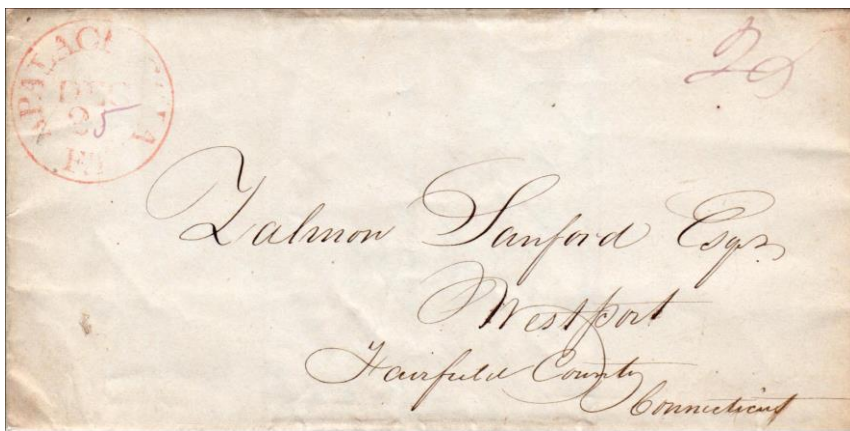 APALACHICOLA
DEC
25
F.T.
25
Zalmon Sanford Esqr.
Westport
Fairfield County
Connecticut